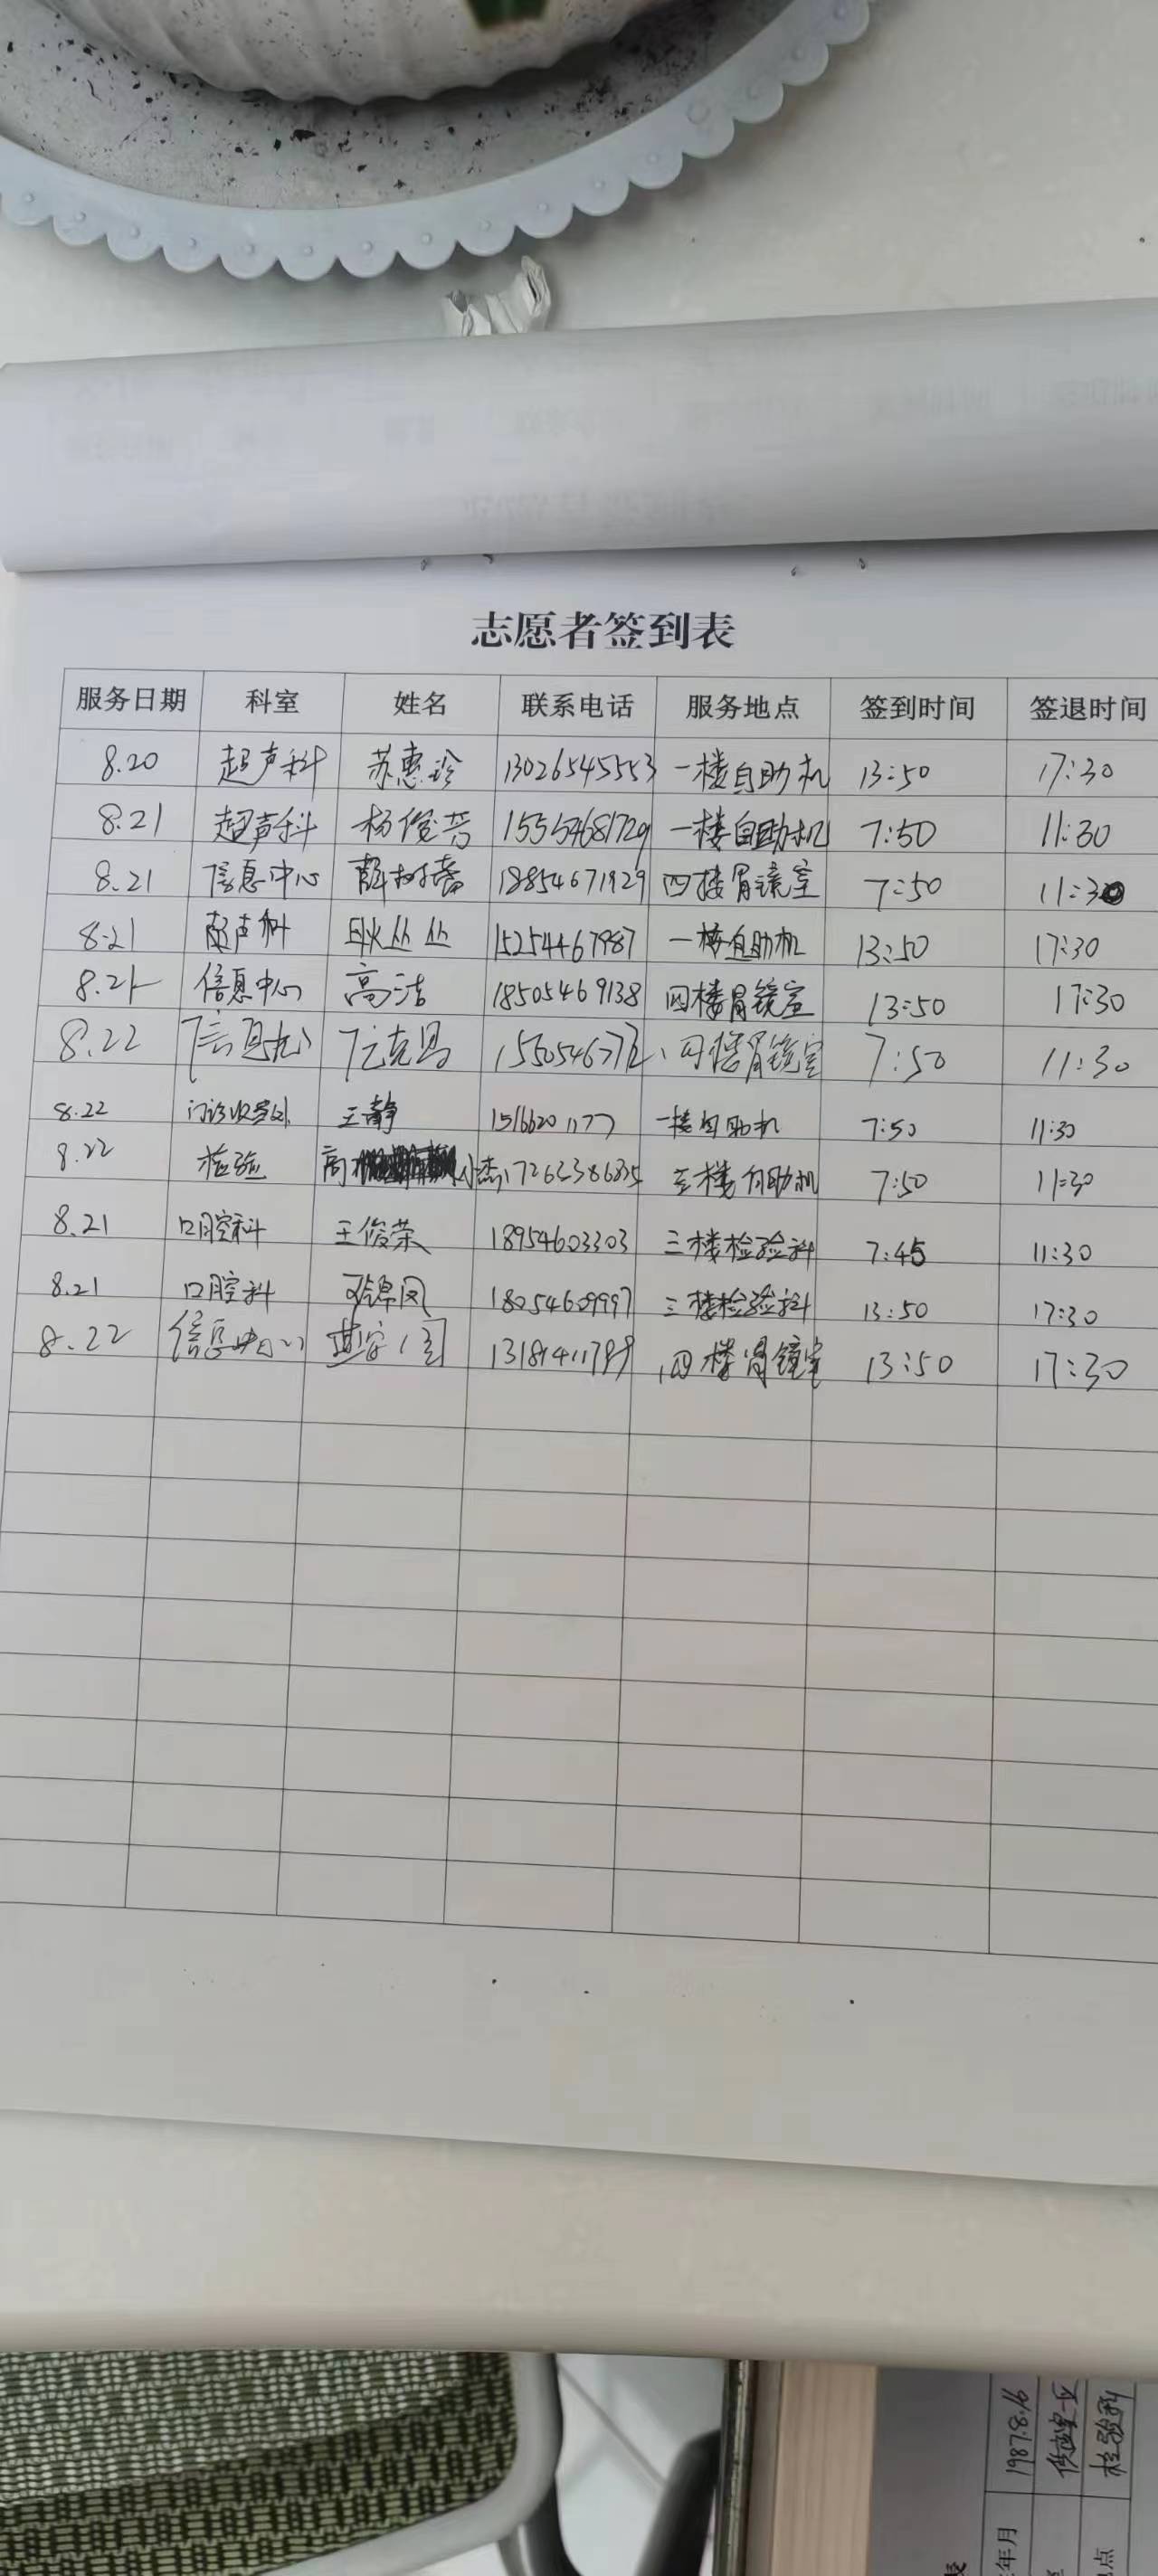 志愿者签到表
服务日期 科室 姓名 联系电话 服务地点 签到时间 签退时间
8.20 超声科 苏惠玲 13026545553 一楼自助机 13:50 17:30
8.21 超声科 杨俊芳 15554681729 一楼自助机 7:50 11:30
8.21 信息中心 薛树蕃 18854671929 四楼胃镜室 7:50 11:30
8.21 超声科 耿丛丛 15254467987 一楼自助机 13:50 17:30
8.21 信息中心 高洁 18505469138 四楼胃镜室 13:50 17:30
8.22 信息中心 四楼胃镜室 7:50 11:30
8.22 门诊收费处 王静 15166201177 一楼自助机 7:50 11:30
8.22 检验 高 杰 楼自助机 7:50 11:30
8.21 口腔科 王俊荣 18954603303 三楼检验科 7:45 11:30
8.21 口腔科 邓锦凤 18054609997 三楼检验科 13:50 17:30
8.22 信息中心 四楼胃镜室 13:50 17:30
1987.8.16
供应室
检验科
年月
点